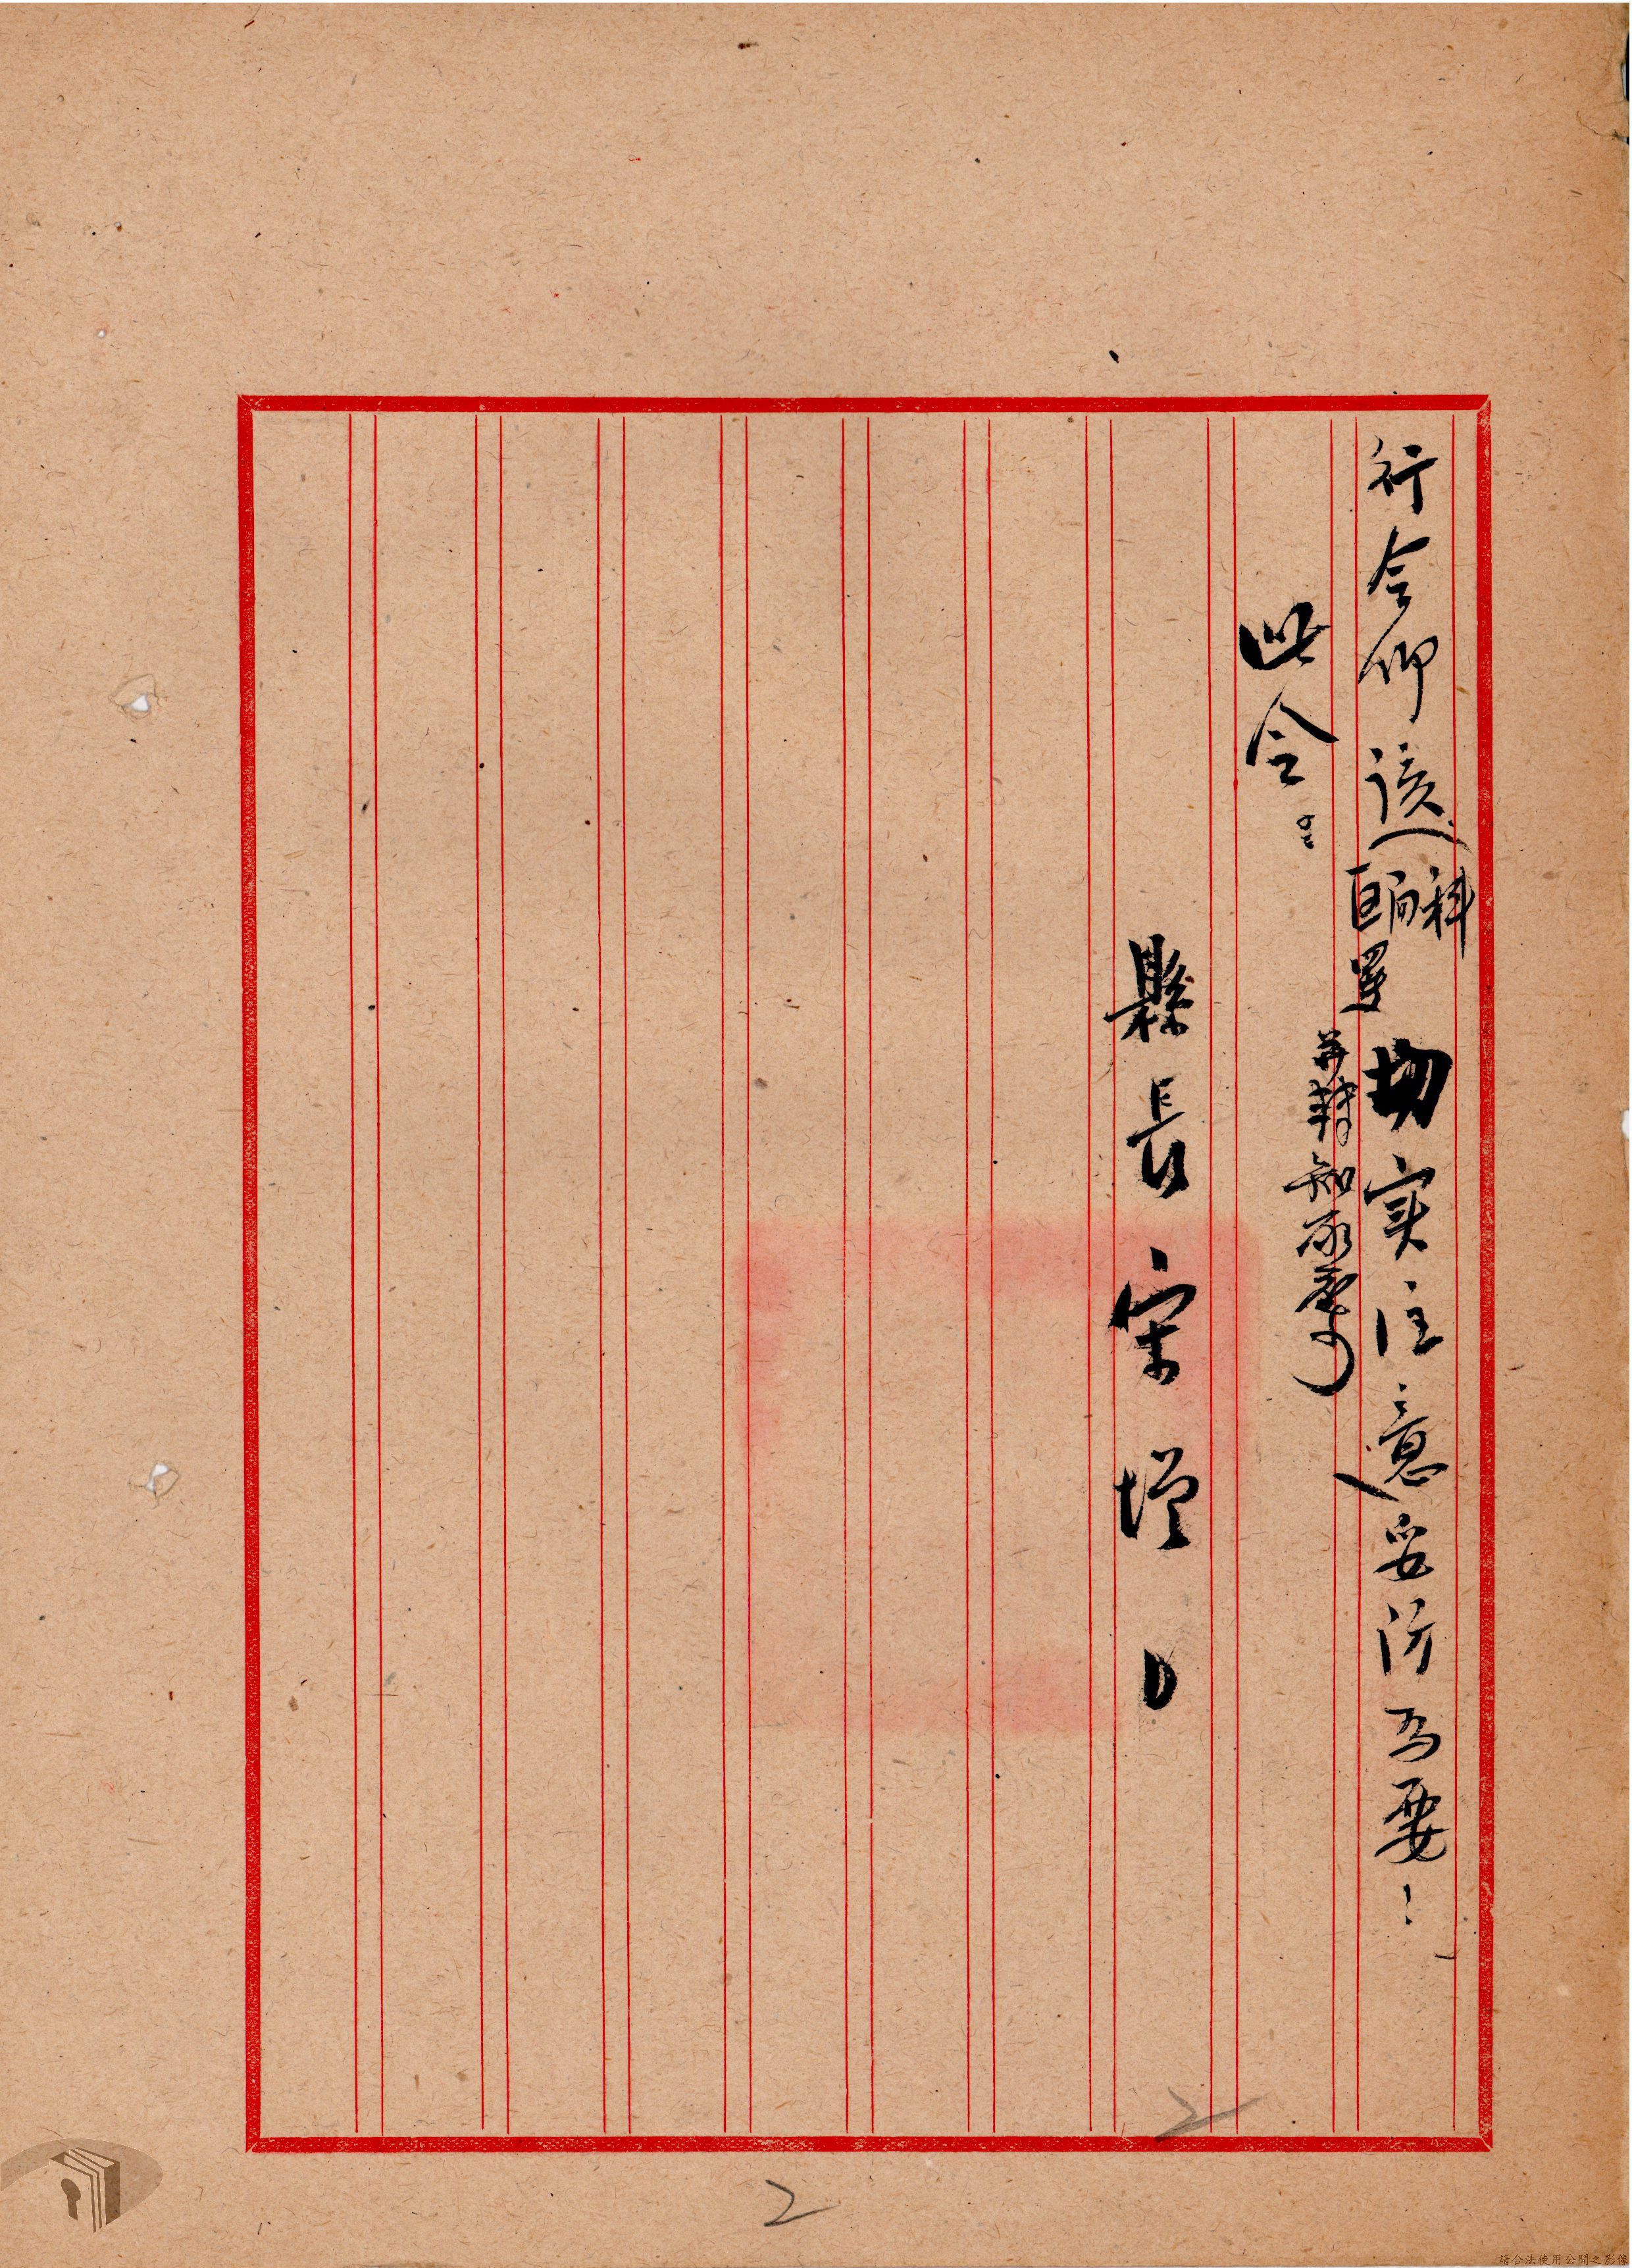 行令仰該科局區署切实注意妥防為要！
并轉知所屬
此令。
縣長宋增
2
2
請合法使用公開之影像